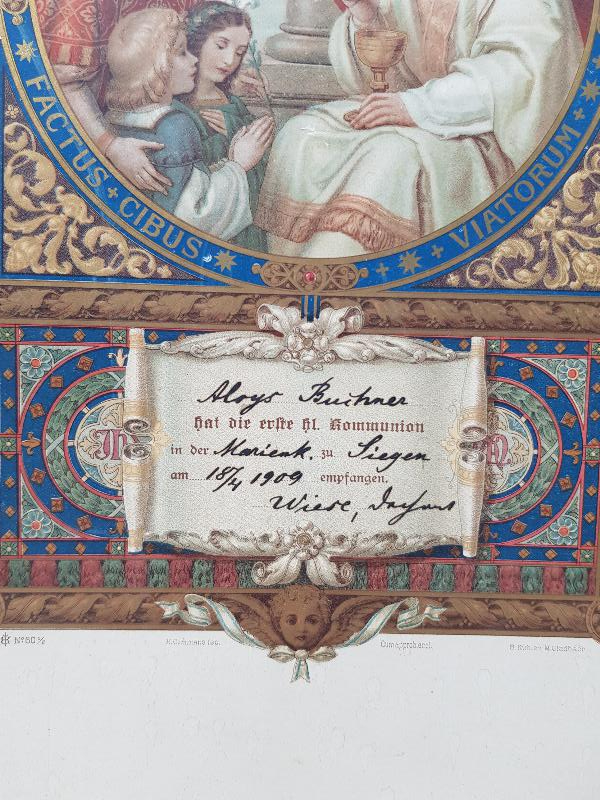 FACTUS + CIBUS
VIATORUM +
Aloys Buchner
hat die erste hl. Kommunion
in der Marienk. zu Siegen
am 18/4 1909 empfangen.
Wiese,
No 60
B. Kühlen M. Gladbach